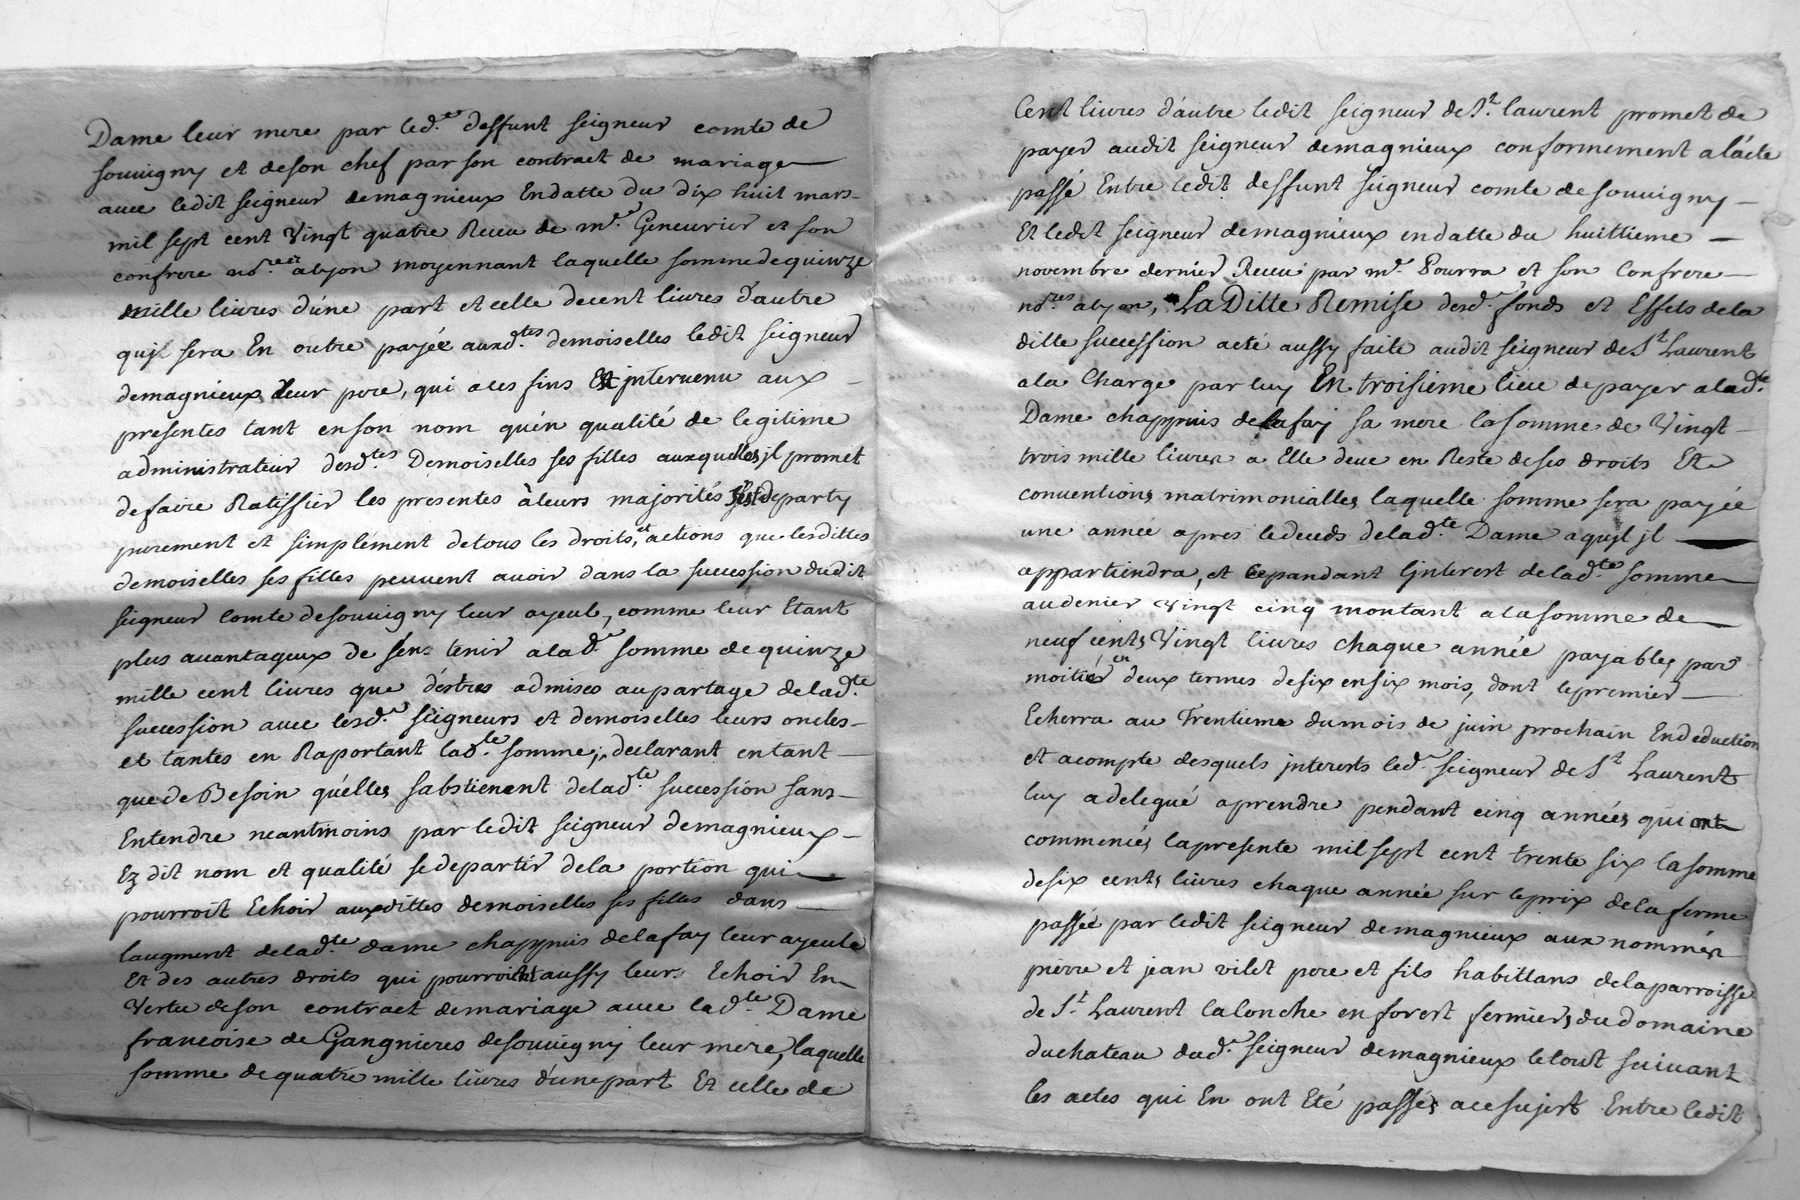 Dame leur mere par led.^e deffunt seigneur comte de
souvigny et deson chef par son contract de mariage
avec ledit seigneur demagnieux Endatte du dix huit mars
mil sept cent Vingt quatre Receu de m.^e Genevrier et son
confrere no.^res alyon moyennant laquelle somme de quinze
mille livres d'une part et celle de cent livres d'autre
qujl sera En outre payée auxd.^tes demoiselles ledit seigneur
demagnieux leur pere, qui a ces fins Est jntervenu aux
presentes tant en son nom qu'en qualité de legitime
administrateur desd.^tes Demoiselles ses filles auxquelles jl promet
de faire Ratiffier les presentes à leurs majorités s'est departy
purement et simplement de tous les droits, et actions que lesdittes
demoiselles ses filles peuvent avoir dans la succession dudit
seigneur Comte de souvigny leur ayeul, comme leur Etant
plus avantageux de sen tenir a lad.^e somme de quinze
mille cent livres que d'estres admises au partage de lad.^te
succession avec lesd.^s seigneurs et demoiselles leurs oncles
et tantes en Raportant lad.^te somme, declarant en tant
que de Besoin qu'elles sabstienent delad.^te succession sans
Entendre neantmoins par ledit seigneur demagnieux
Ez dit nom et qualité se departir de la portion qui
pourroit Echoir auxdittes demoiselles ses filles dans
laugment delad.^te dame chappuis delafay leur ayeule
Et des autres droits qui pourroient aussy leur Echoir En
Vertu de son contract demariage avec lad.^te Dame
francoise de Gangnieres desouvigny leur mere, laquelle
somme de quatre mille livres d'une part Et celle de
Cent livres d'autre ledit seigneur de S.^t laurent promet de
payer audit seigneur demagnieux conformement a lácte
passé Entre ledit deffunt seigneur comte de souvigny
Et ledit seigneur demagnieux endatte du huittieme
novembre dernier Receu par m.^e Pourra et son Confrere
no.^res alyon, La Ditte Remise desd.^s fonds et Effets dela
ditte succession acté aussy faite audit seigneur de S.^t Laurent
a la Charge par luy En troisieme lieu de payer a lad.^te
Dame chappuis de lafay sa mere la somme de Vingt
trois mille livres a Elle deue en Reste de ses droits Et
conventions matrimonialles laquelle somme sera payée
une année apres le deceds delad.^te Dame a qujl jl
appartiendra, et cepandant Ljnterest de lad.^te somme
au denier Vingt cinq montant a la somme de
neuf cents Vingt livres chaque année payables par
moitié en deux termes de six en six mois, dont le premier
Echerra au Trentieme du mois de juin prochain En deduction
et acompte desquels jnterests led.^t seigneur de S.^t Laurent
luy a delegué a prendre pendant cinq années qui ont
commencés la presente mil sept cent trente six la somme
de six cents livres chaque année sur le prix de la ferme
passée par ledit seigneur demagnieux aux nommés
pierre et jean vilet pere et fils habittans de la parroisse
de S.^t Laurent laconche en forest fermiers du domaine
du chateau dud.^t seigneur demagnieux le tout suivant
les actes qui En ont Eté passés a ce sujest Entre ledit